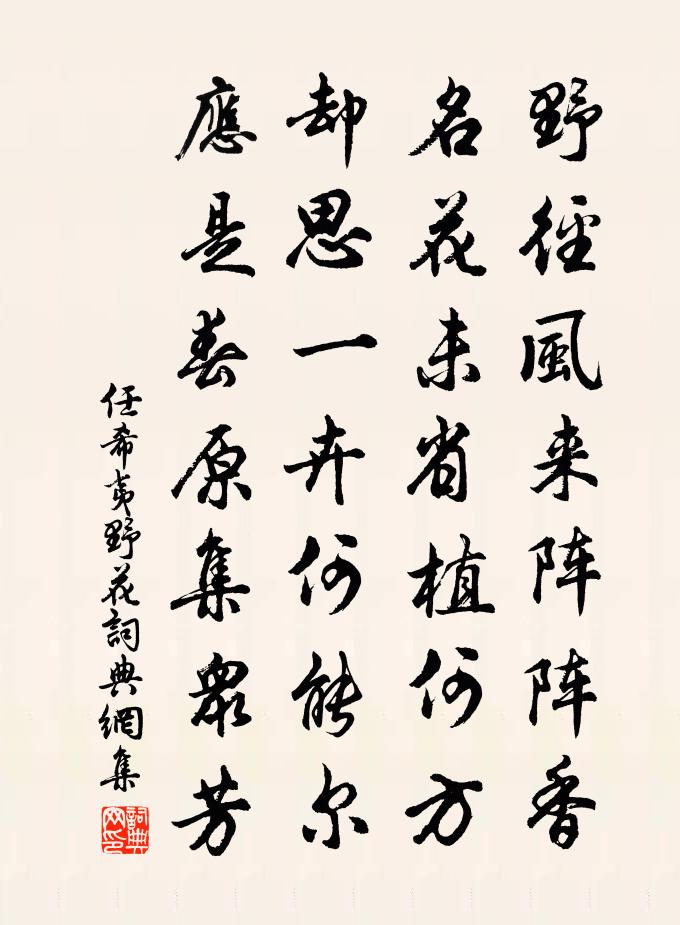 野徑風来阵阵香
名花未省植何方
却思一卉何能尔
應是春原集衆芳
任希夷野花詞典網集
詞典网印